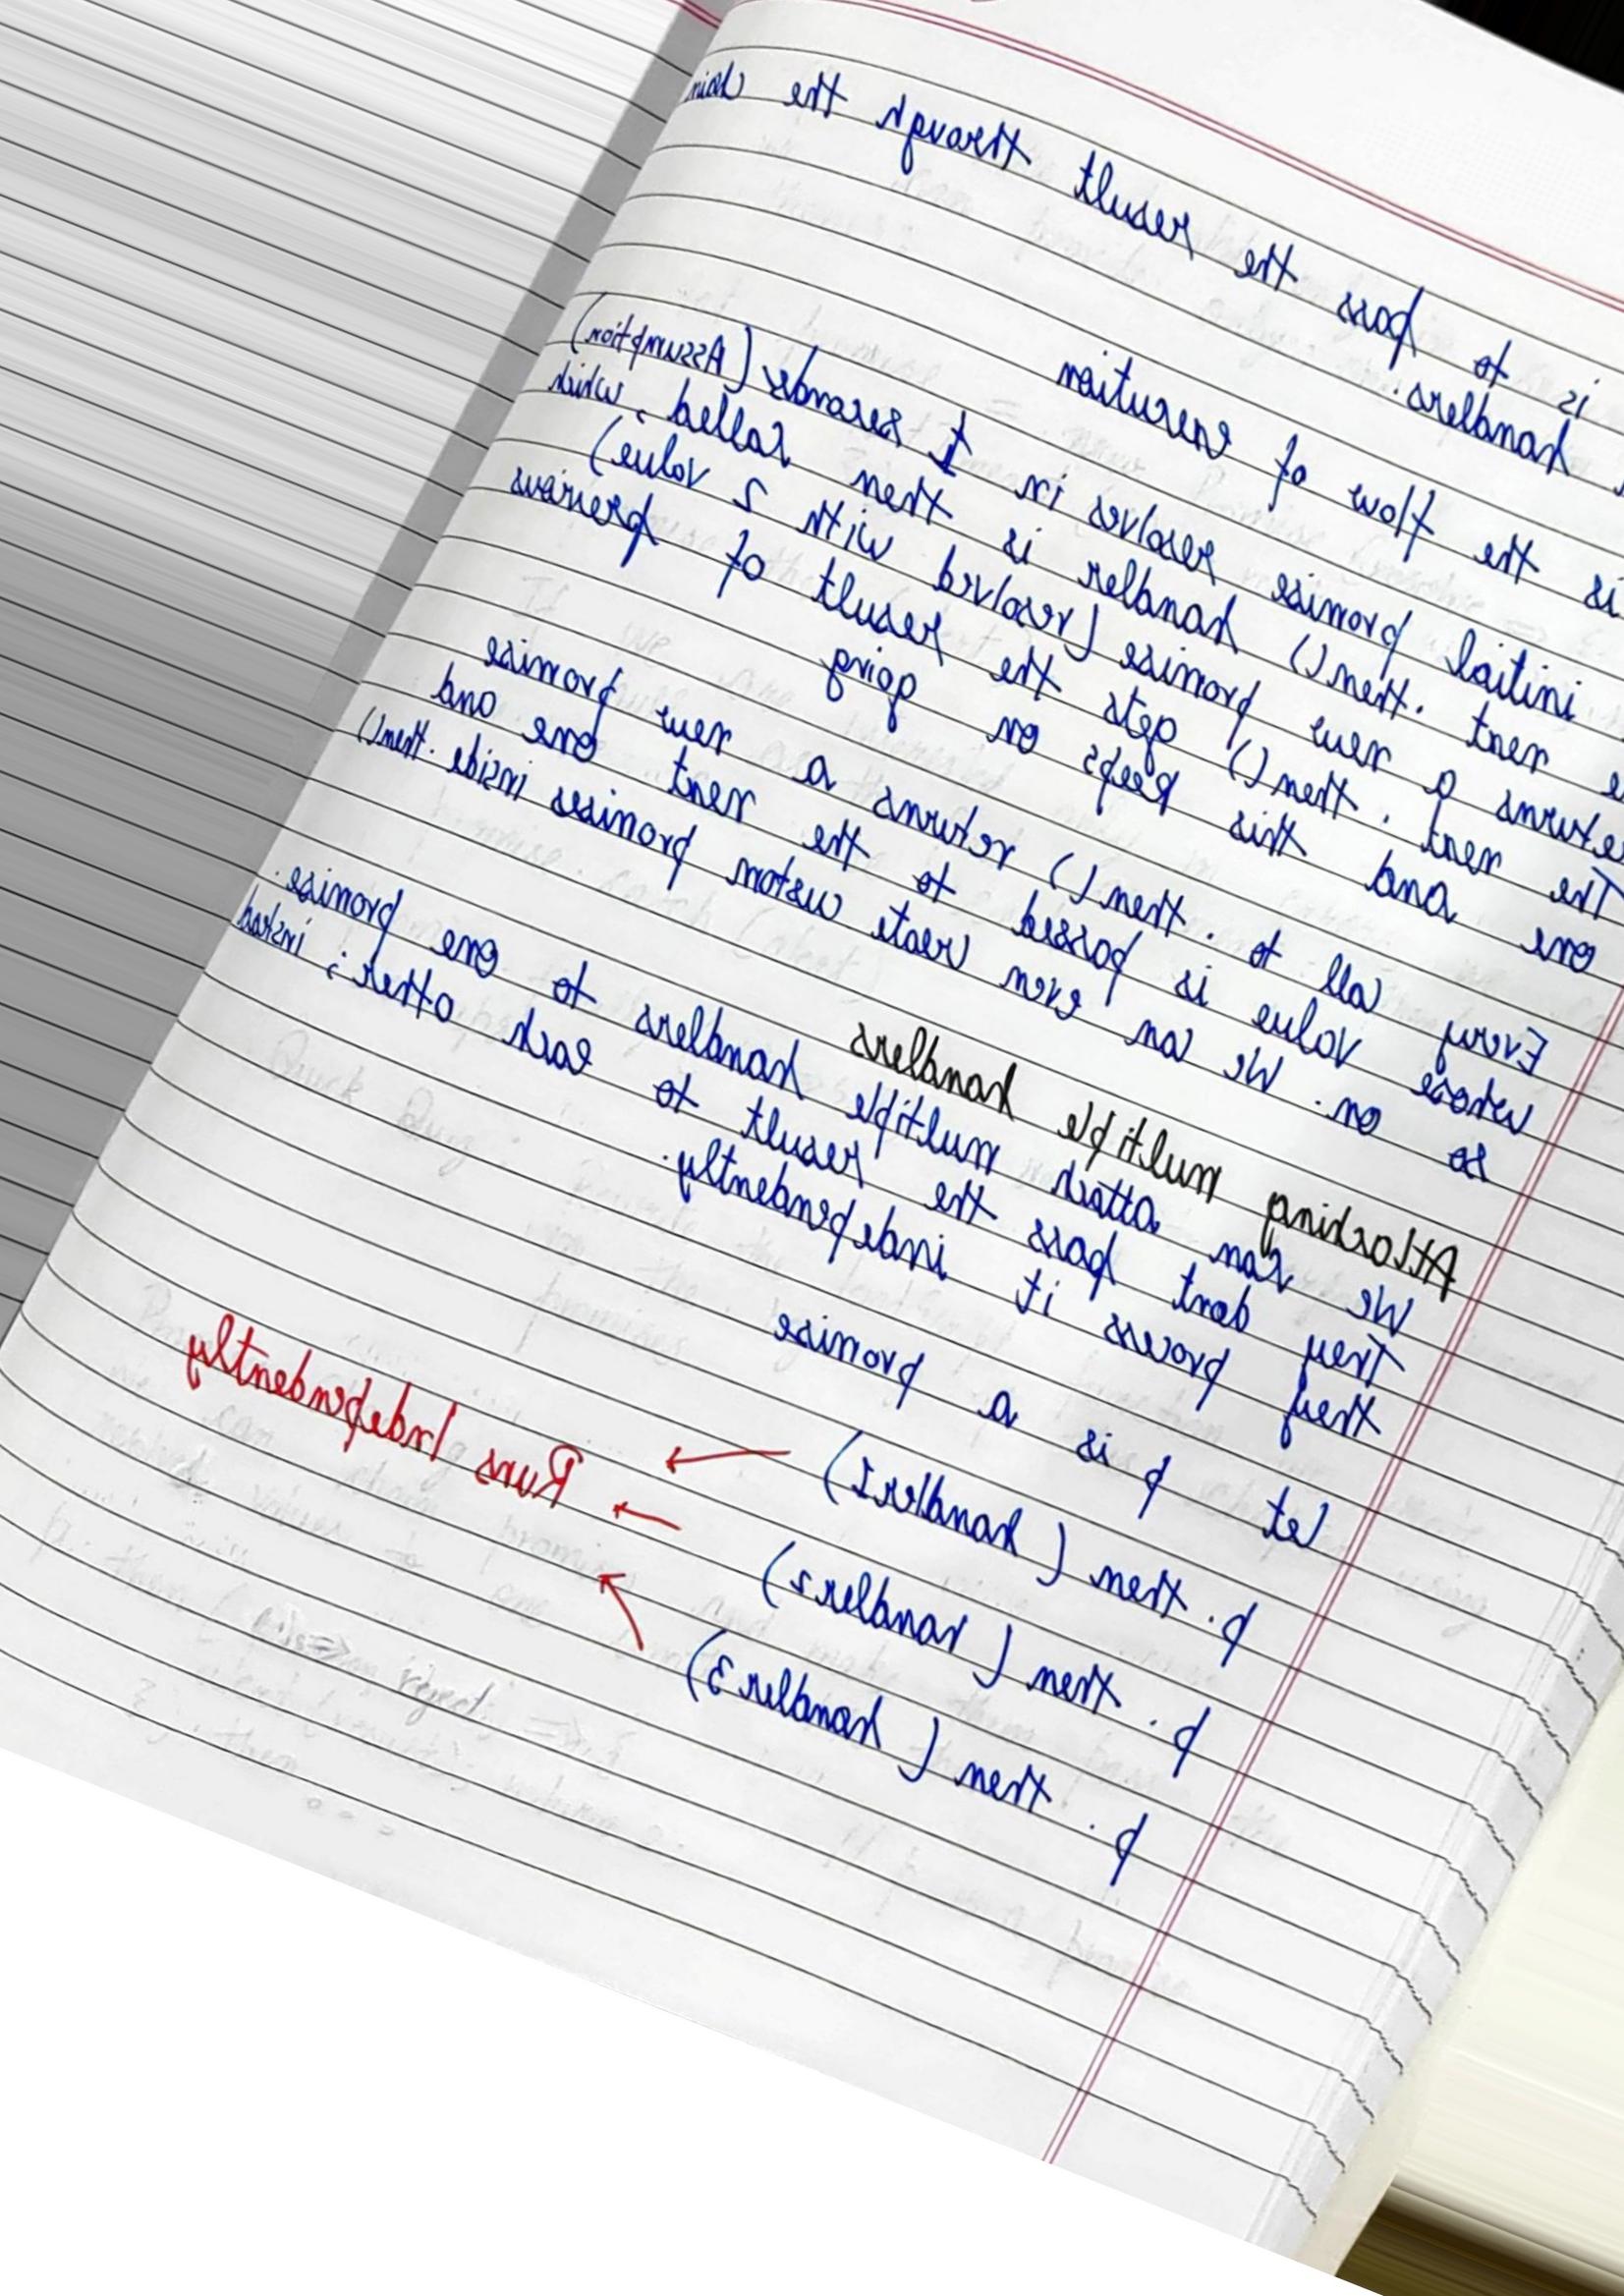 is to pass the result through the chain
handlers.
is the flow of execution
initial promise resolves in 1 seconds (Assumption)
next .then() handler is then called, which
returns a new promise (resolved with 2 value)
The next .then() gets the result of previous
one and this keeps on going
Every call to .then() returns a new promise
whose value is passed to the next one and
so on. We can even create custom promises inside .then()
Attaching multiple handlers
We can attach multiple handlers to one promise.
They dont pass the result to each other; instead
they process it independently.
Let p is a promise
p.then (handler1)
p.then (handler2)
p.then (handler3)
Runs Independently